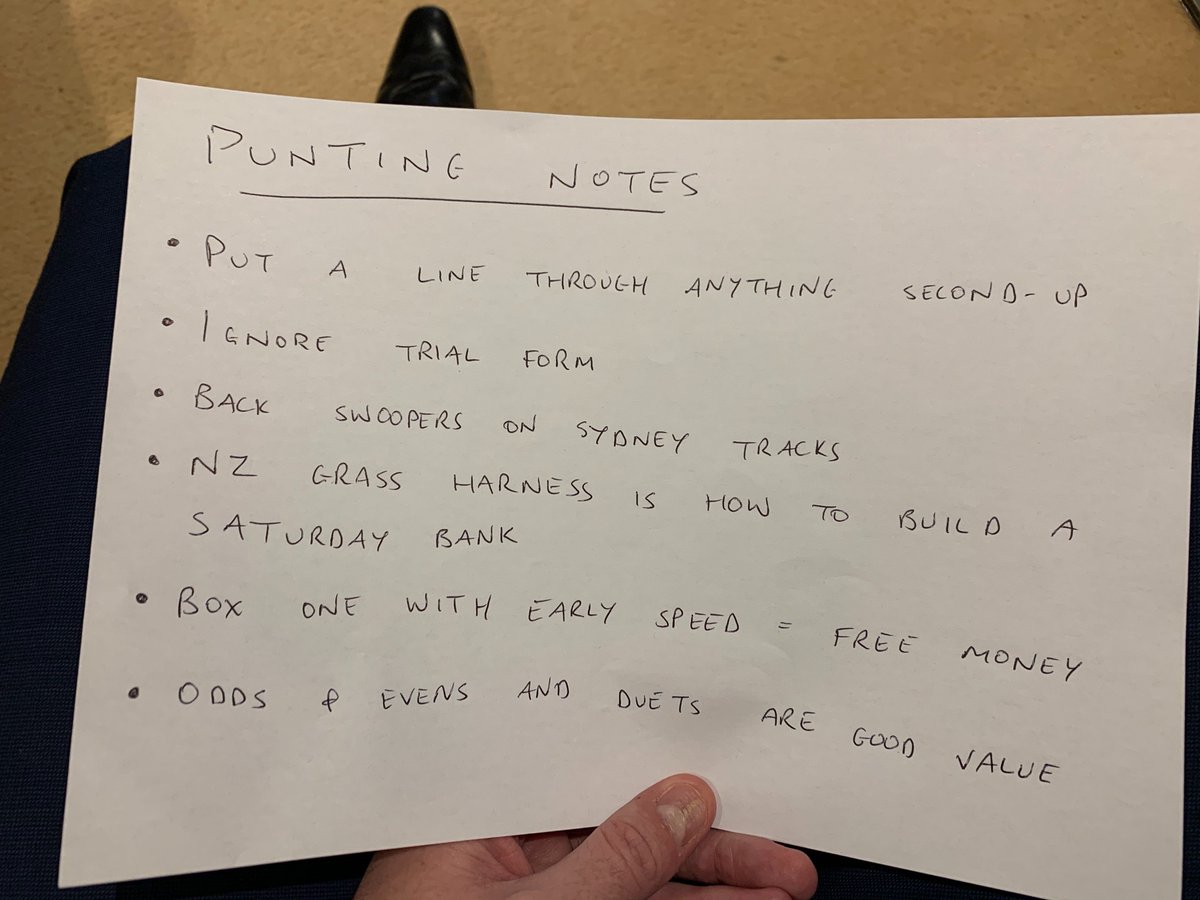 PUNTING NOTES
• PUT A LINE THROUGH ANYTHING SECOND-UP
• IGNORE TRIAL FORM
• BACK SWOOPERS ON SYDNEY TRACKS
• NZ GRASS HARNESS IS HOW TO BUILD A
SATURDAY BANK
• BOX ONE WITH EARLY SPEED = FREE MONEY
• ODDS & EVENS AND DUETS ARE GOOD VALUE